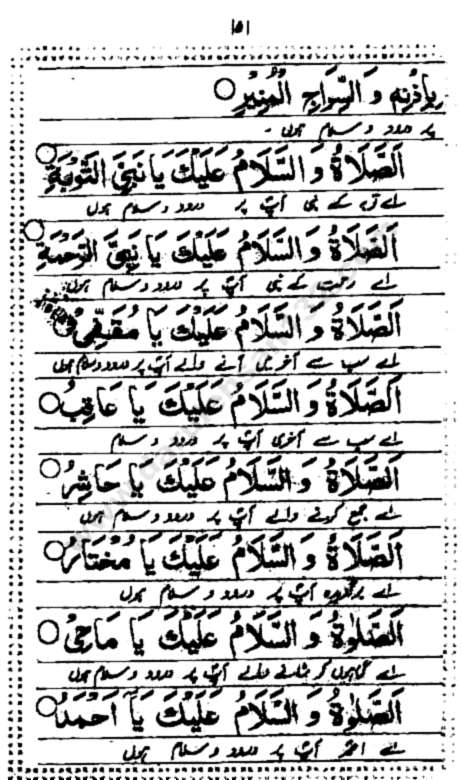 ۱۵۱
بِإِذْنِهِ وَ السِّرَاجِ الْمُنِيرِ
پر درود و سلام ہوں -
اَلصَّلَاةُ وَ السَّلَامُ عَلَيْكَ يَا نَبِيَّ التَّوْبَةِ
اے توبہ کے نبی آپ پر درود و سلام ہوں
اَلصَّلَاةُ وَ السَّلَامُ عَلَيْكَ يَا نَبِيَّ الرَّحْمَةِ
اے رحمت کے نبی آپ پر درود و سلام ہوں
اَلصَّلَاةُ وَ السَّلَامُ عَلَيْكَ يَا مُقَفِّىُ
اے سب سے آخر میں آنے والے آپ پر درود و سلام ہوں
اَلصَّلَاةُ وَ السَّلَامُ عَلَيْكَ يَا عَاقِبُ
اے سب سے آخری آپ پر درود و سلام
اَلصَّلَاةُ وَ السَّلَامُ عَلَيْكَ يَا حَاشِرُ
اے جمع کرنے والے آپ پر درود و سلام ہوں
اَلصَّلَاةُ وَ السَّلَامُ عَلَيْكَ يَا مُخْتَارُ
اے برگزیدہ آپ پر درود و سلام ہوں
اَلصَّلٰوةُ وَ السَّلَامُ عَلَيْكَ يَا مَاحِىُ
اے گناہوں کو مٹانے والے آپ پر درود و سلام ہوں
اَلصَّلٰوةُ وَ السَّلَامُ عَلَيْكَ يَا اَحْمَدُ
اے احمد آپ پر درود و سلام ہوں